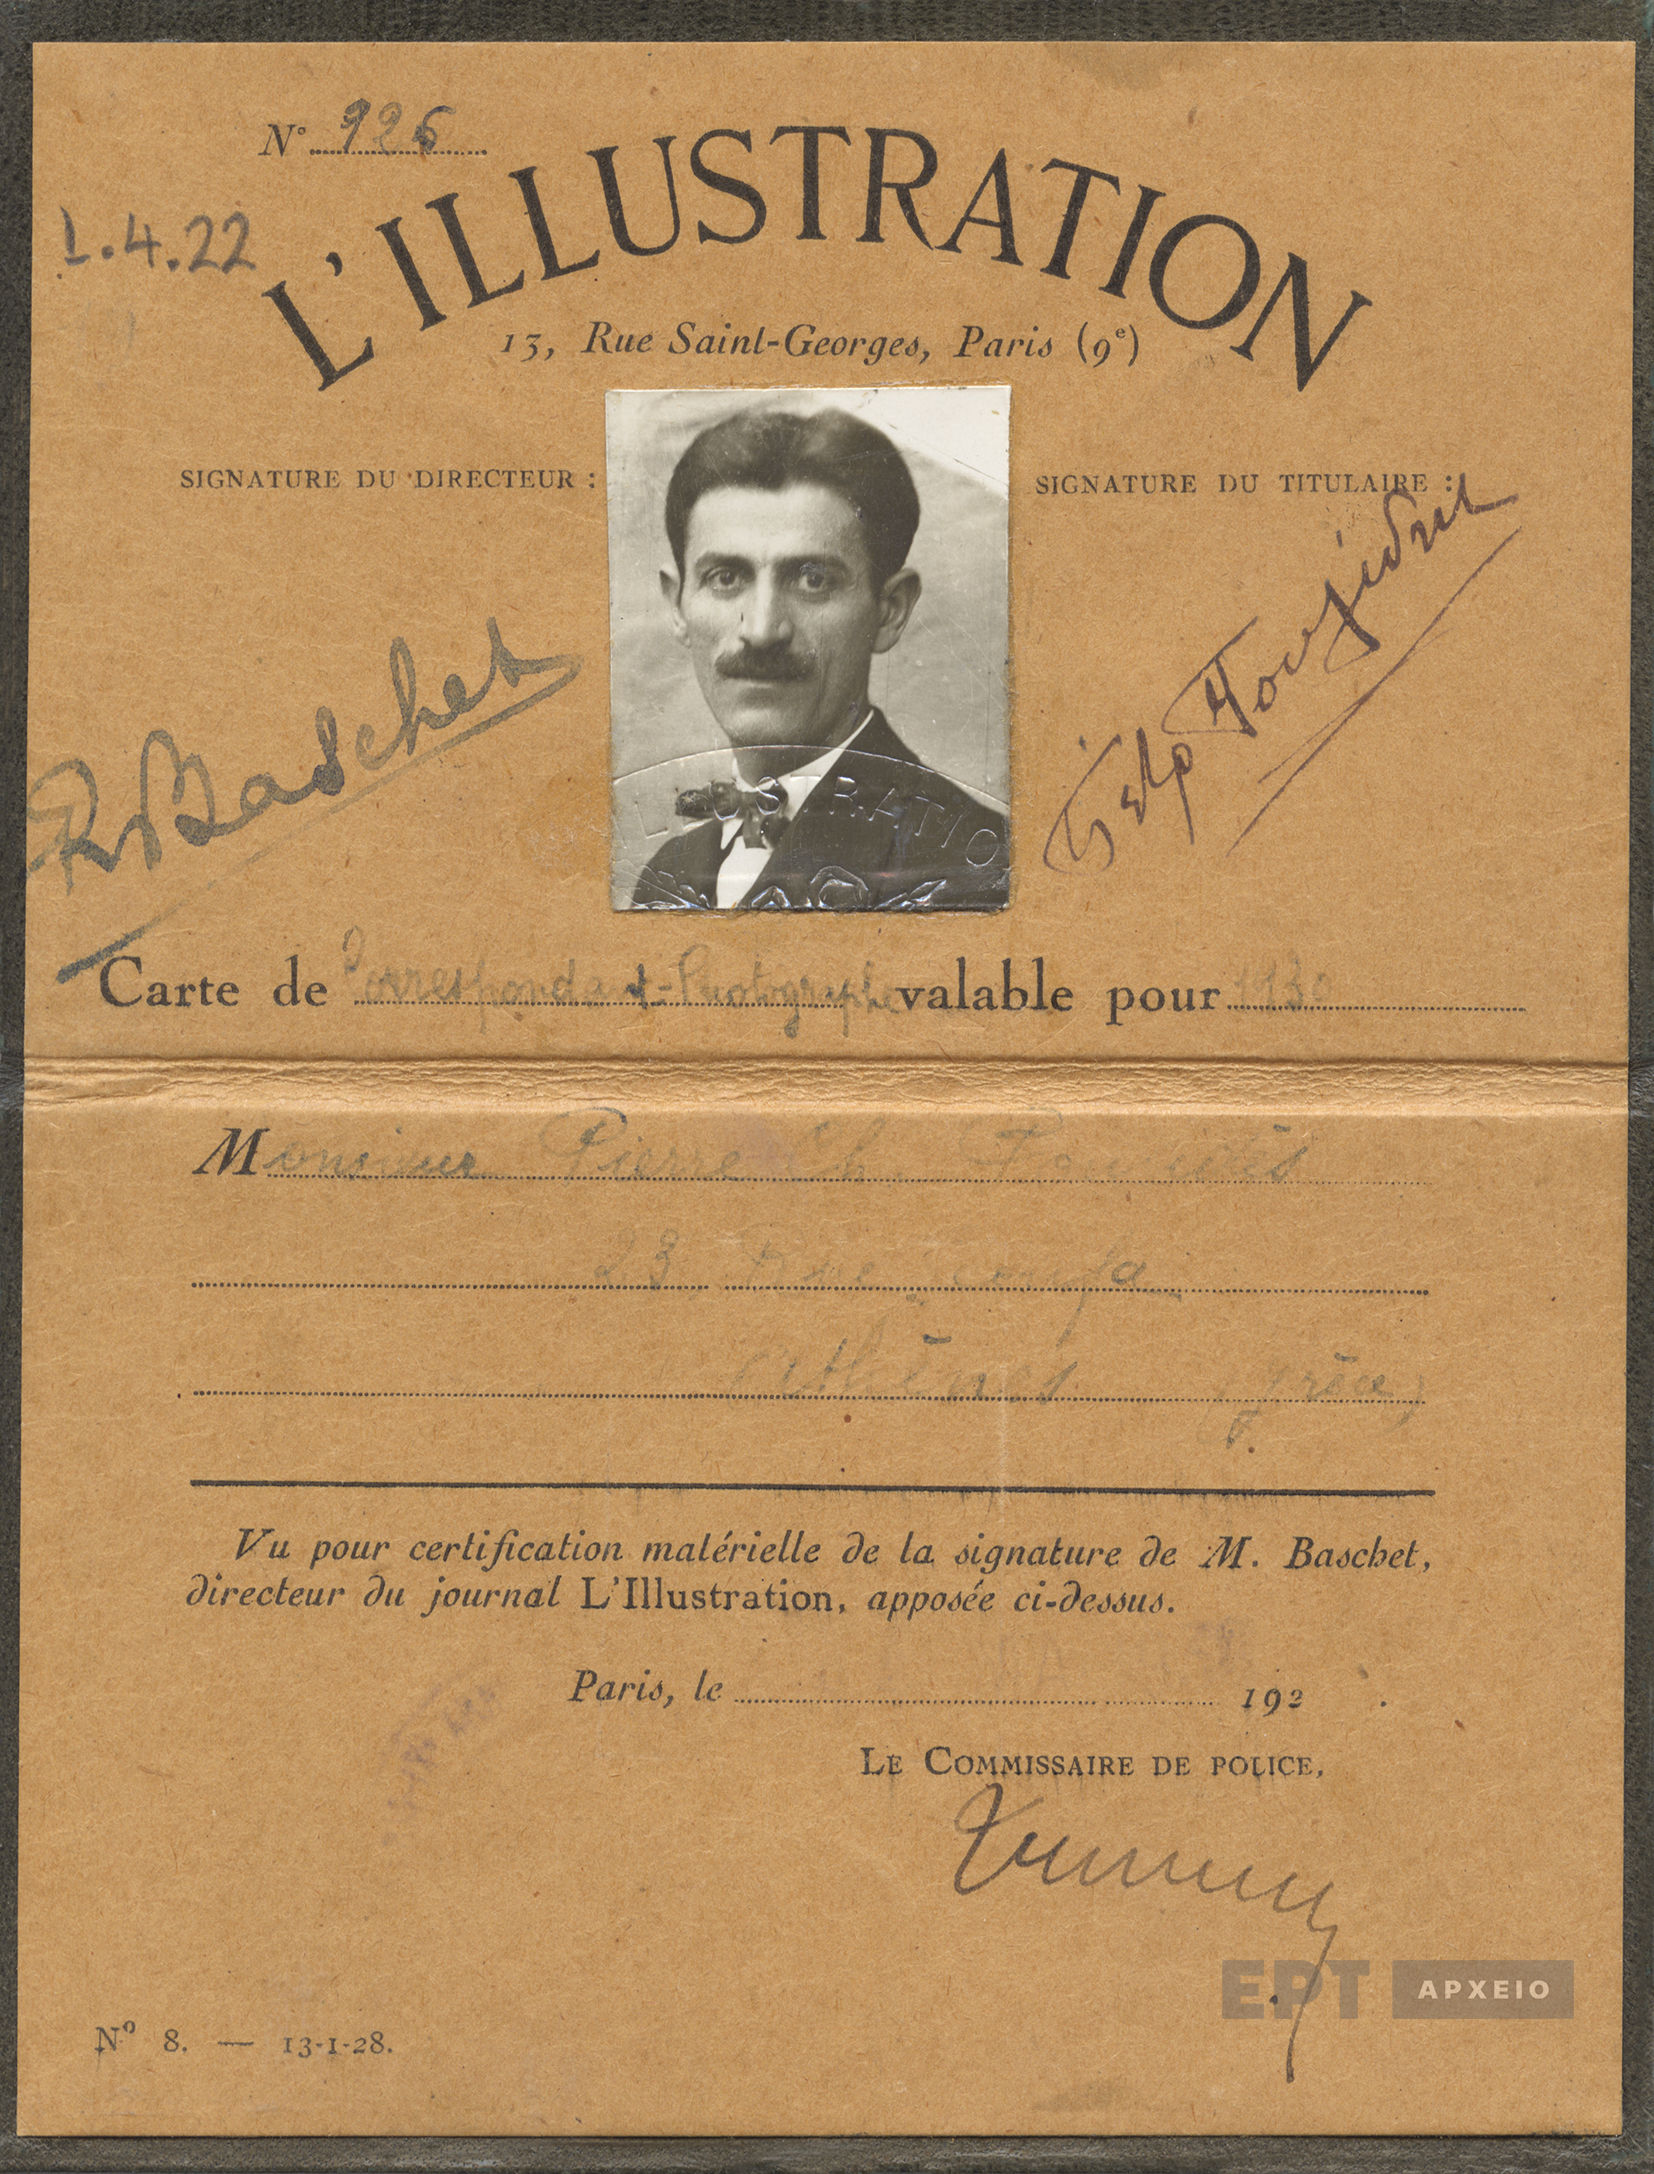 N° 926
1.4.22
L'ILLUSTRATION
13, Rue Saint-Georges, Paris (9e)
SIGNATURE DU DIRECTEUR :
SIGNATURE DU TITULAIRE :
R Baschet
LUSTRATIO
Carte de Correspondant-Photographe valable pour 1930
Monsieur Pierre Ch
23 Rue
Athènes (Grèce)
Vu pour certification matérielle de la signature de M. Baschet,
directeur du journal L'Illustration, apposée ci-dessus.
Paris, le 192 .
LE COMMISSAIRE DE POLICE,
ΕΡΤ ΑΡΧΕΙΟ
N° 8. — 13-1-28.